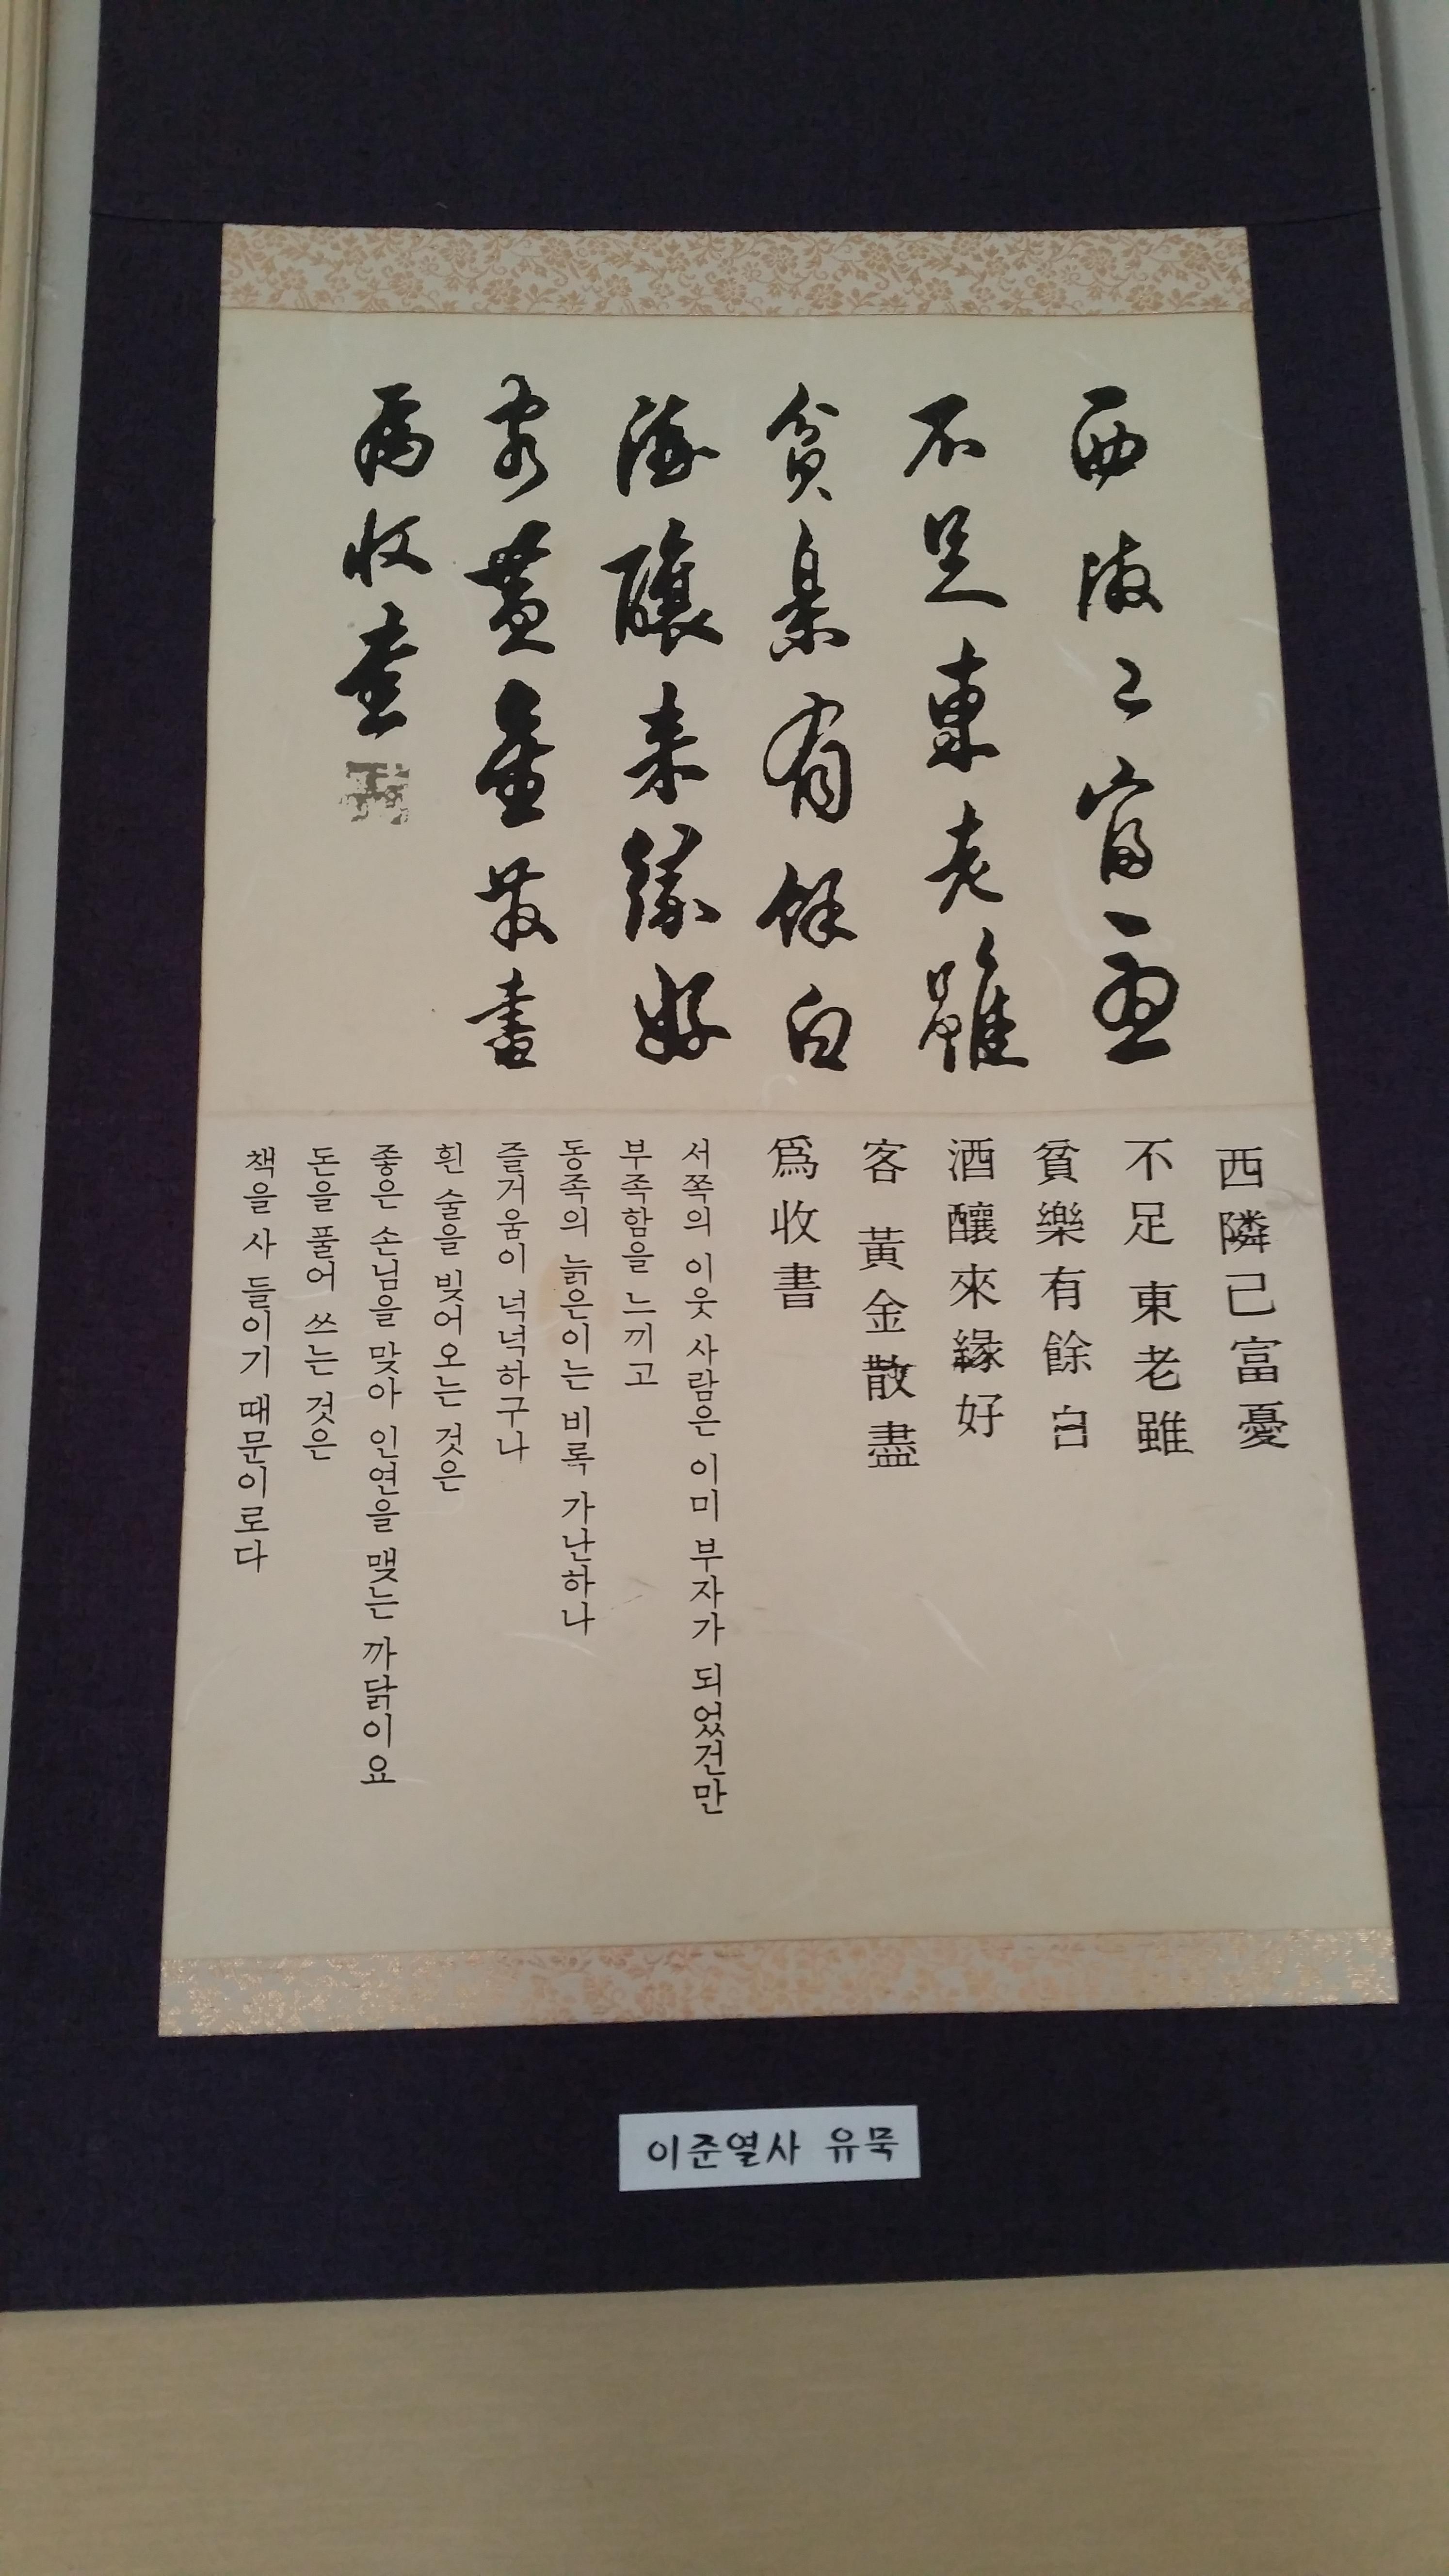 西隣已富憂
不足東老雖
貧樂有餘白
酒釀来緣好
客黃金散盡
為收書
西隣己富憂
不足 東老雖
貧樂有餘 白
酒釀來緣好
客 黃金散盡
爲收書
서쪽의 이웃 사람은 이미 부자가 되었건만
부족함을 느끼고
동쪽의 늙은이는 비록 가난하나
즐거움이 넉넉하구나
흰 술을 빚어오는 것은
좋은 손님을 맞아 인연을 맺는 까닭이요
돈을 풀어 쓰는 것은
책을 사 들이기 때문이로다
이준열사 유묵